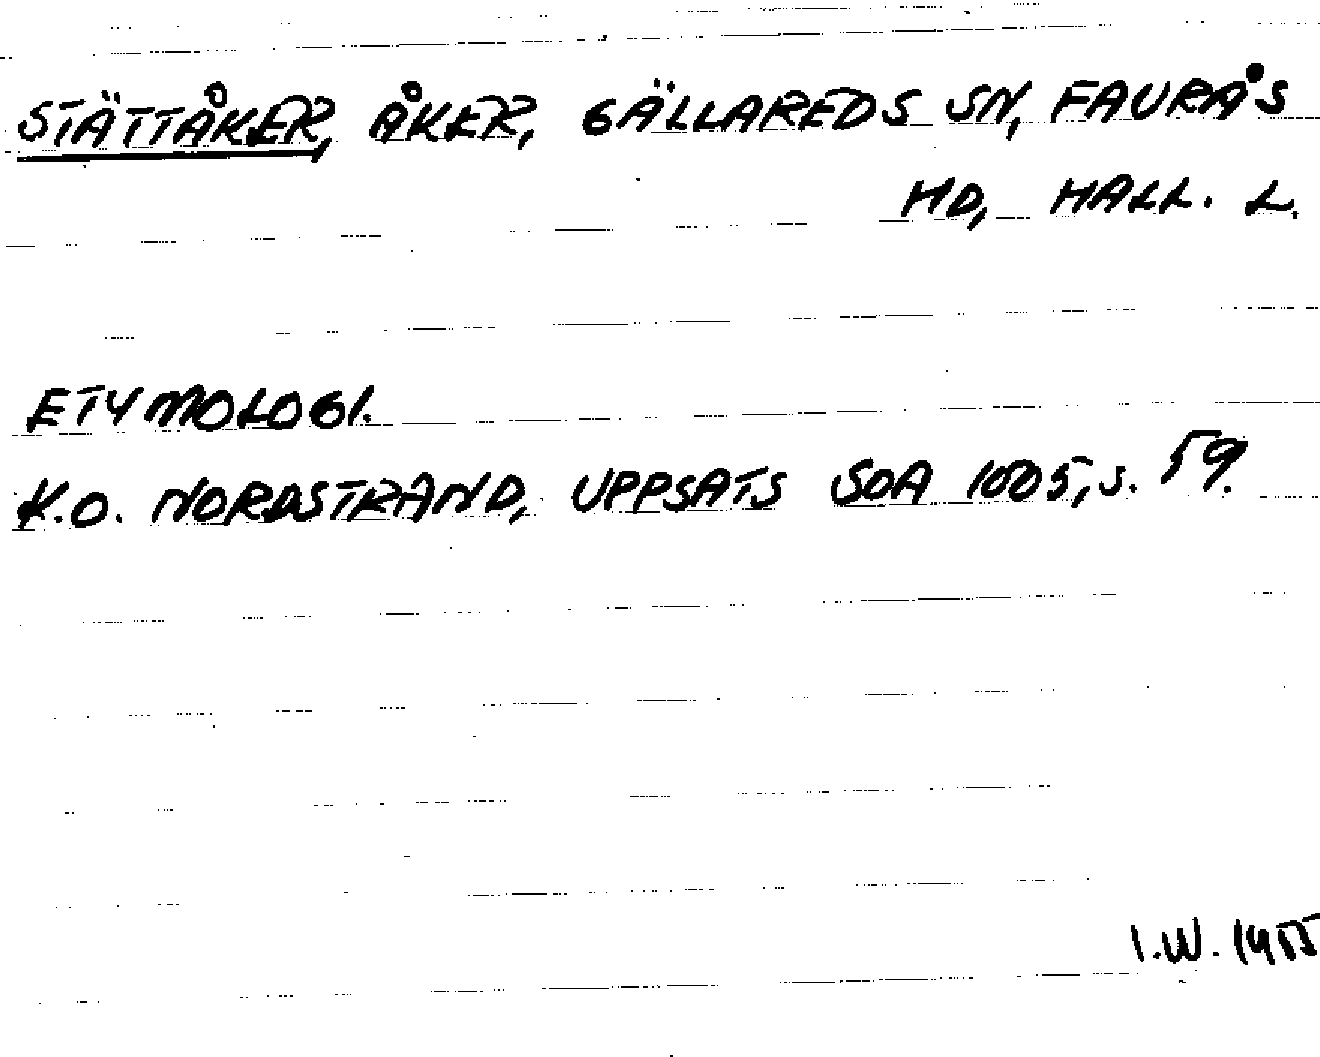 STÄTTÅKER, ÅKER, GÄLLAREDS SN, FAURÅS
HD, HALL. L.
ETYMOLOGI.
K.O. NORDSTRAND, UPPSATS SOA 1005, S. 59.
I.W. 1955